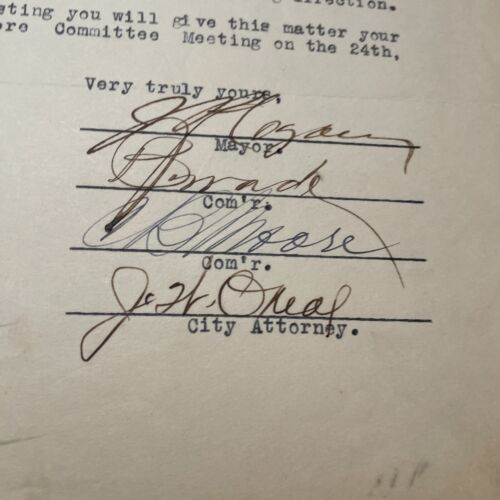 direction.
sting you will give this matter your
ore Committee Meeting on the 24th,
Very truly yours,
Mayor.
Com'r.
Moore
Com'r.
J. W. Oneal
City Attorney.